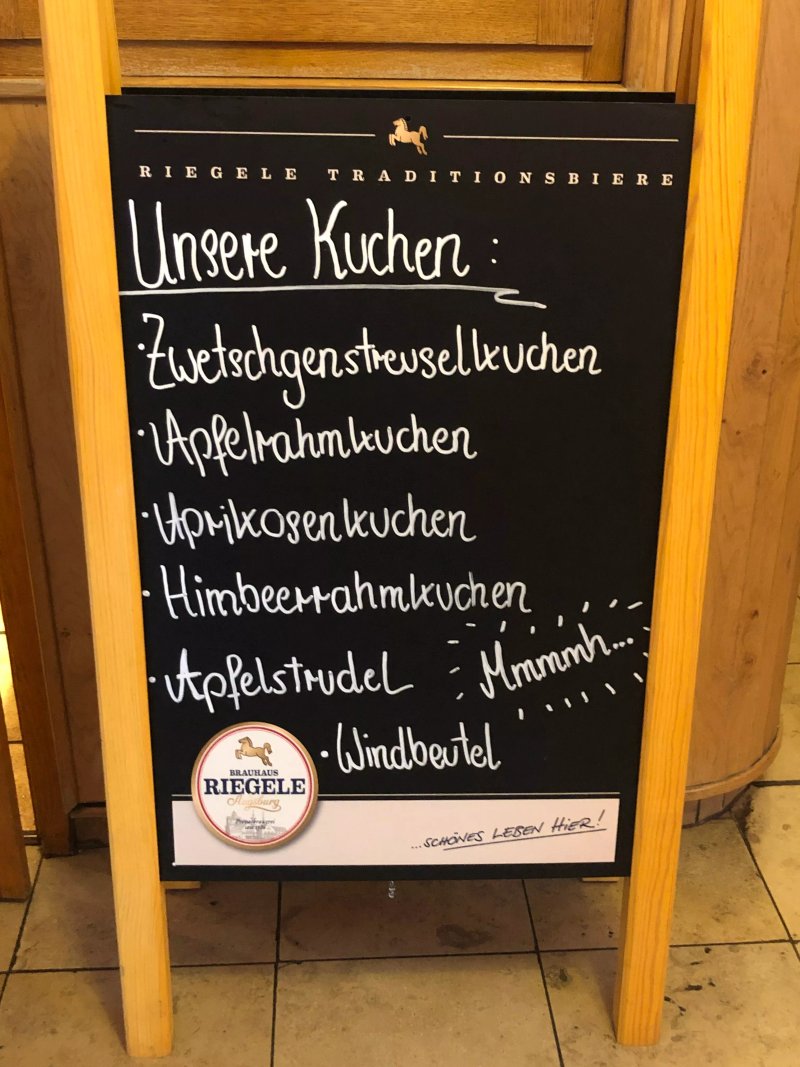 RIEGELE TRADITIONSBIERE
Unsere Kuchen :
· Zwetschgenstreuselkuchen
· Apfelrahmkuchen
· Aprikosenkuchen
· Himbeerrahmkuchen
· Apfelstrudel
Mmmmh...
· Windbeutel
BRAUHAUS
RIEGELE
Augsburg
...SCHÖNES LEBEN HIER!